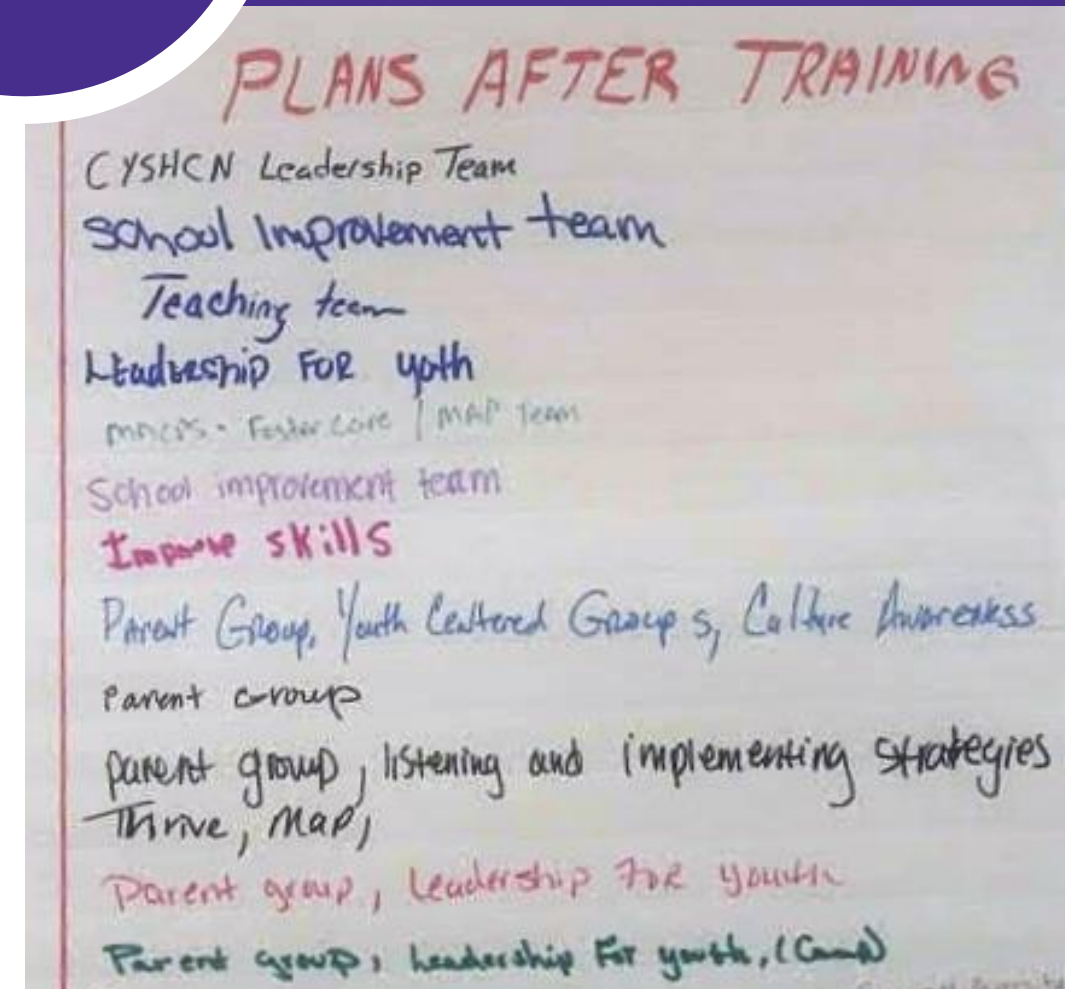 PLANS AFTER TRAINING
CYSHCN Leadership Team
School Improvement team
Teaching team
Leadership FOR yoth
Foster Care / MAP Team
School improvement team
Improve skills
Parent Group, Youth Centered Groups, Culture Awareness
Parent Group
parent group, listening and implementing strategies
Thrive, Map,
Parent group, Leadership FOR youth
Parent group, Leadership For youth, (Camp)